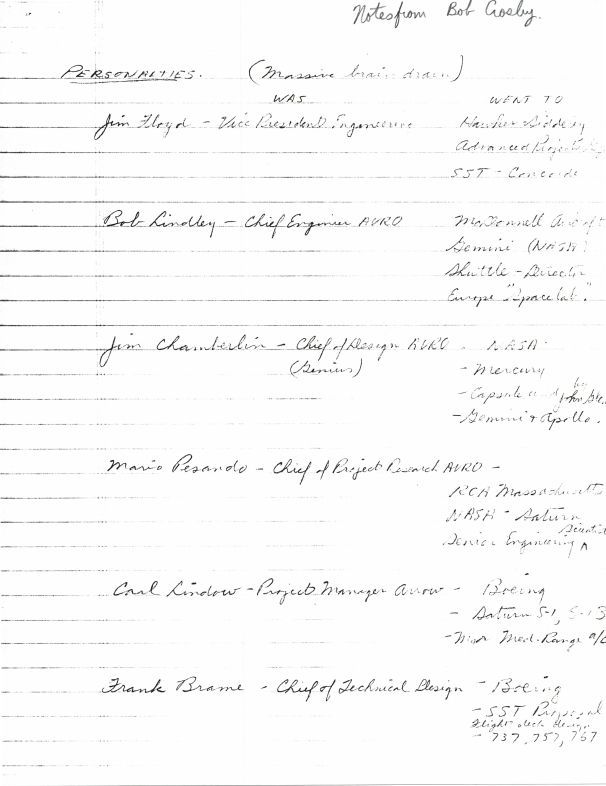 Notes from Bob Crosby.
PERSONALTIES. (Massive brain drain)
WAS WENT TO
Jim Floyd - Vice President Engineering Hawker Siddeley
Advanced Projects
SST - Concorde
Bob Lindley - Chief Engineer AVRO McDonnell Aircraft
Gemini (NASA)
Shuttle - Director
Europe "Spacelab".
Jim Chamberlin - Chief of Design AVRO. NASA
(Genius) - Mercury
- Capsule used by John
- Gemini & Apollo.
Mario Pesando - Chief of Project Research AVRO -
RCA Massachusetts
NASA - Saturn
Senior Engineering Scientist
Carl Lindow - Project Manager Arrow - Boeing
- Saturn S-1,
- Med. Range a/c
Frank Brame - Chief of Technical Design - Boeing
- SST Proposal
Flight deck design
- 737, 757, 767